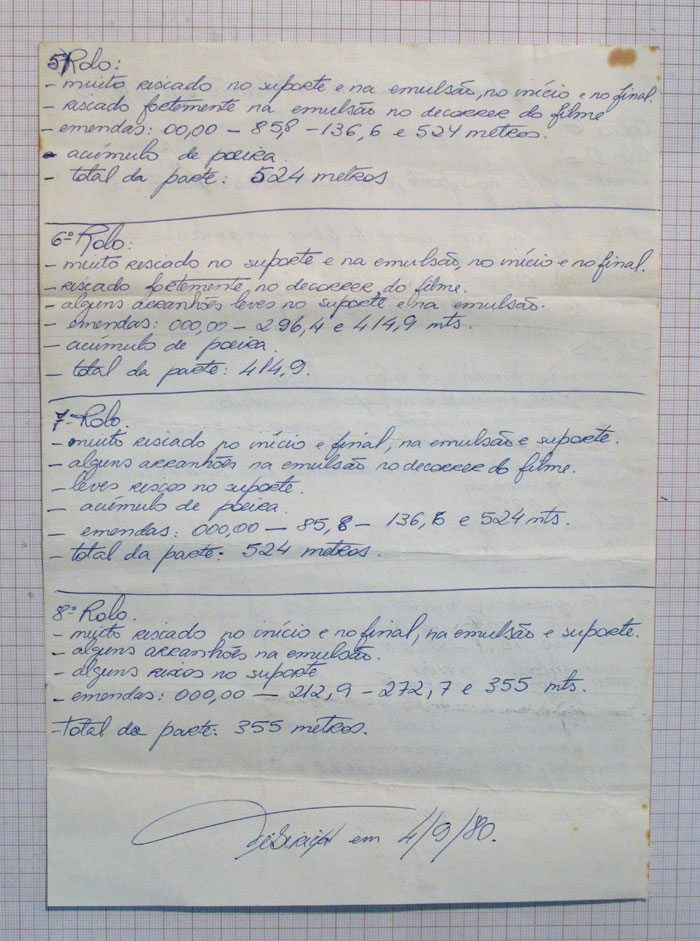 5º Rolo:
- muito riscado no suporte e na emulsão, no início e no final.
- riscado fortemente na emulsão no decorrer do filme
- emendas: 00,00 - 85,8 - 136,6 e 524 metros.
- acúmulo de poeira.
- total da parte: 524 metros
6º Rolo:
- muito riscado no suporte e na emulsão, no início e no final.
- riscado fortemente no decorrer do filme.
- alguns arranhões leves no suporte e na emulsão.
- emendas: 000,00 - 296,4 e 414,9 mts.
- acúmulo de poeira.
- total da parte: 414,9.
7º Rolo.
- muito riscado no início e final, na emulsão e suporte.
- alguns arranhões na emulsão no decorrer do filme.
- leves riscos no suporte.
- acúmulo de poeira.
- emendas: 000,00 - 85,8 - 136,6 e 524 mts.
- total da parte: 524 metros.
8º Rolo.
- muito riscado no início e no final, na emulsão e suporte.
- alguns arranhões na emulsão.
- alguns riscos no suporte
- emendas: 000,00 - 212,9 - 272,7 e 355 mts.
- Total da parte: 355 metros.
em 4/9/80.